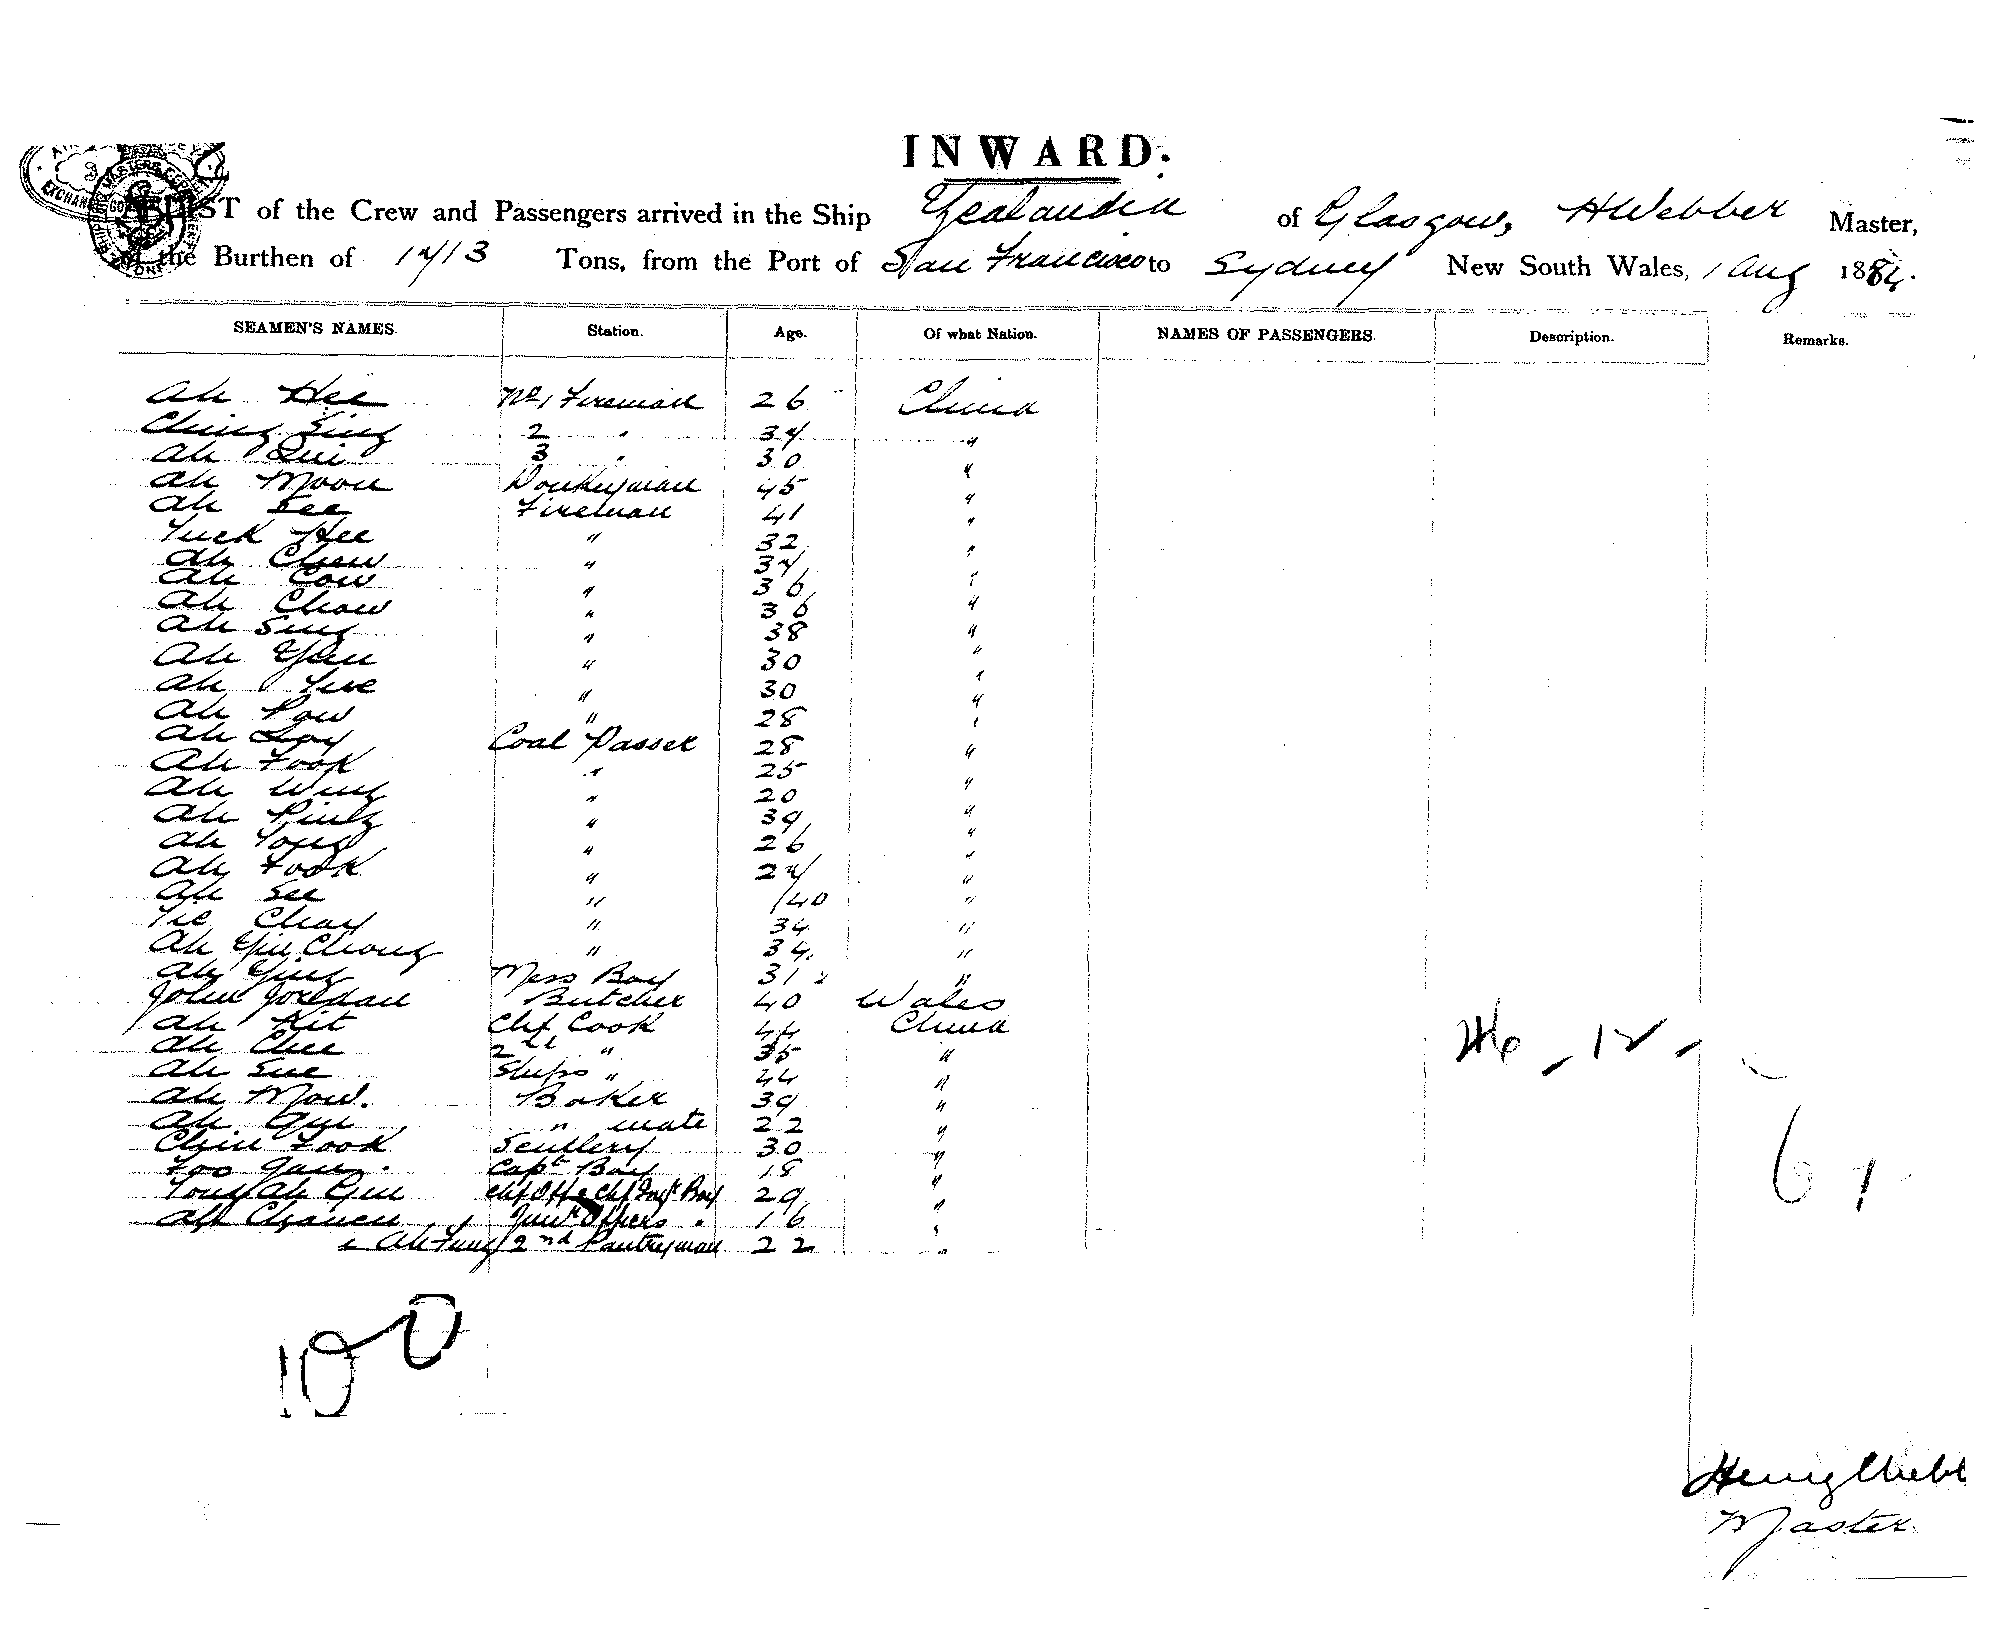 INWARD.
A LIST of the Crew and Passengers arrived in the Ship Zealandia of Glasgow, H Webber Master,
of the Burthen of Tons, from the Port of San Francisco to Sydney New South Wales, 1 Aug 188
SEAMEN'S NAMES. Station. Age. Of what Nation. NAMES OF PASSENGERS. Description. Remarks.
Ah Hee No. 1 Fireman 26 China
Ching Sing 2 " 34 "
Ah 3 " 30 "
Ah Moon Donkeyman 45 "
Ah See Fireman 41 "
Tuck Hee " 32 "
Ah Chew " 34 "
Ah Cow " 36 "
Ah Chow " 36 "
Ah Sing " 38 "
Ah " 30 "
Ah " 30 "
Ah Pow " 28 "
Ah Coal Passer 28 "
Ah Fook " 25 "
Ah Wing " 20 "
Ah " 39 "
Ah Tong " 26 "
Ah Fook " 24 "
Ah See " 40 "
Chay " 34 "
Ah Yin Chong " 34 "
Ah Ying Mess Boy 31 "
John Jordan Butcher 40 Wales
Ah Kit Chf Cook 44 China
Ah Chee 2nd " 35 "
Ah Sue Ships " 44 "
Ah Mow. Baker 39 "
Ah " mate 22 "
Chin Fook Scullery 30 "
Foo Capt Boy 18 "
Tong Ah Gin Chf Off & Chf Eng Boy 29 "
Ah Junr Officers " 16 "
Ah Fung 2nd Pantryman 22 "
100
61
Henry Webb
Master